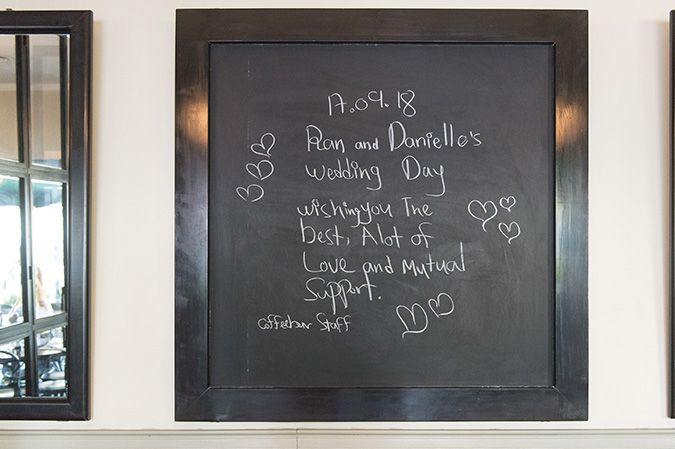 17.09.18
Ran and Danielle's
Wedding Day
wishing you The
best, A lot of
Love and Mutual
Support.
Coffeebar Staff